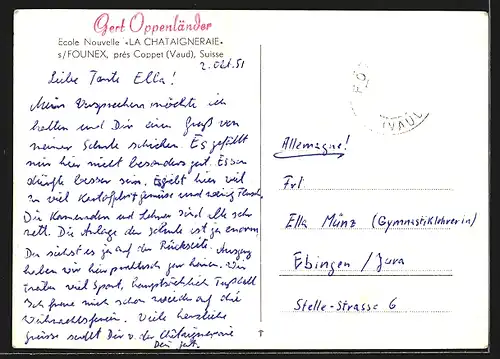 Gert Oppenländer
Ecole Nouvelle «LA CHATAIGNERAIE»
s/FOUNEX, près Coppet (Vaud), Suisse
2. Okt. 51
Liebe Tante Ella!
Mein Versprechen möchte ich
halten und Dir einen Gruß von
meiner Schule schicken. Es gefällt
mir hier nicht besonders gut. Essen
dürfte besser sein. Es gibt hier viel
zu viel Kartoffeln, Gemüse und wenig Fleisch.
Die Kameraden und Lehrer sind alle sehr
nett. Die Anlage der Schule ist ja enorm.
Du siehst es ja auf der Rückseite. Ausgang
haben wir hier praktisch gar keinen. Wir
treiben viel Sport, hauptsächlich Fußball
Ich freue mich schon wieder auf die
Weihnachtsferien. Viele herzliche
Grüsse sendet Dir v. der Châtaigneraie
Dein Gert.
(VAUD)
Allemagne!
Frl.
Ella Münz (Gymnastiklehrerin)
Ebingen / Jura
Stelle-Strasse 6